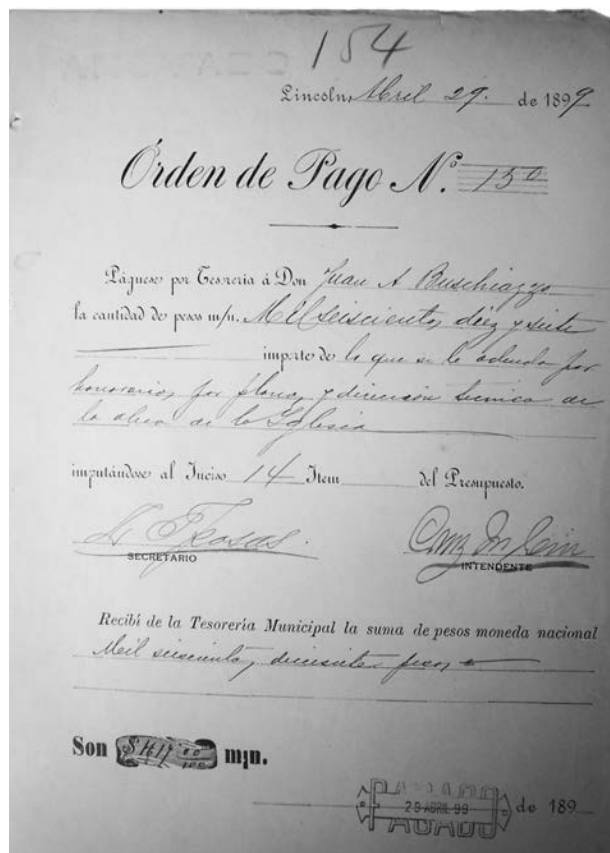 154
Lincoln, Abril 29. de 1899
Órden de Pago N.º 150
Páguese por Tesorería á Don Juan A Buschiazzo
la cantidad de pesos m/n. Mil seiscientos diez y siete
importe de lo que se le adeuda por
honorarios por planos y direccion tecnica de
la obra de la Iglesia
imputándose al Inciso 14 Item del Presupuesto.
SECRETARIO INTENDENTE
Recibí de la Tesorería Municipal la suma de pesos moneda nacional
Mil seiscientos diecisiete pesos
Son $ 1617 00/100 m|n.
PAGADO
29 ABRIL 99 de 189